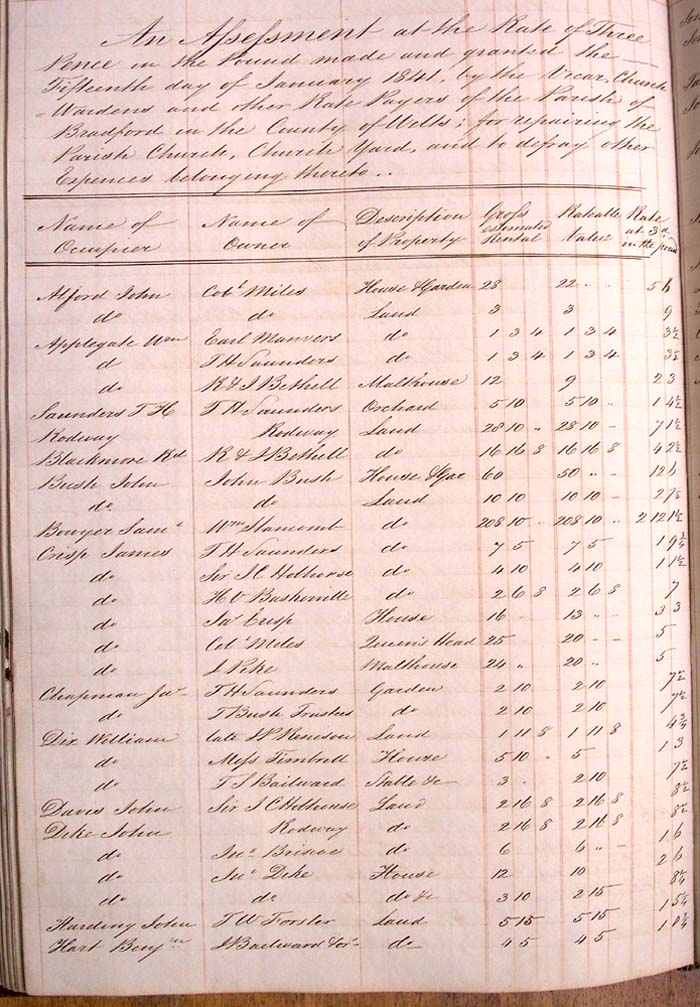 An Assessment at the Rate of Three
Pence in the Pound made and granted the
Fifteenth day of January 1841. by the Vicar, Church
Wardens and other Rate Payers of the Parish of
Bradford in the County of Wilts; for repairing the
Parish Church, Church Yard, and to defray other
Expences belonging thereto..
Name of Occupier Name of Owner Description of Property Gross estimated Rental Rateable Value Rate at 3d in the pound
Alford John Colt Miles House & Garden 28 22 .. .. 5 6
do do Land 3 3 9
Applegate Wm Earl Manvers do 1 3 4 1 3 4 3½
d T H Saunders do 1 3 4 1 3 4 3½
do R & J Bethell Malthouse 12 9 2 3
Saunders T H T H Saunders Orchard 5 10 5 10 .. 1 4½
Rodway Rodway Land 28 10 .. 28 10 - 7 1½
Blackmore Rd R & J Bethell do 16 16 8 16 16 8 4 2½
Bush John John Bush House & Gar 60 50 .. - 12 6
do do Land 10 10 10 10 - 2 7½
Bowyer Saml Wm Stancomb do 208 10 .. 208 10 .. 2 12 1½
Crisp James T H Saunders do 7 5 7 5 1 9¾
do Sir J C Hobhouse do 4 10 4 10 1 1½
do H V Baskerville do 2 6 8 2 6 8 7
do Jas Crisp House 16 13 .. .. 3 3
do Colt Miles Queen's Head 25 20 - - 5
do J Pike Malthouse 24 .. 20 .. 5
Chapman Jas T H Saunders Garden 2 10 2 10 7½
do T Bush Trustees do 2 10 2 10 7½
Dix William late Land 1 11 8 1 11 8 4¾
do Mess Timbrell House 5 10 .. 5 1 3
do T S Bailward Stable &c 3 . 2 10 7½
Davis John Sir J C Hobhouse Land 2 16 8 2 16 8 8½
Deke John Rodway do 2 16 8 2 16 8 8½
do Jno Briscoe do 6 6 .. - 1 6
do Jno Deke House 12 10 2 6
do do do &c 3 10 2 15 8¼
Harding John T W Forster Land 5 15 5 15 1 5¼
Hart Benjn J Bailward do 4 5 4 5 1 0¾